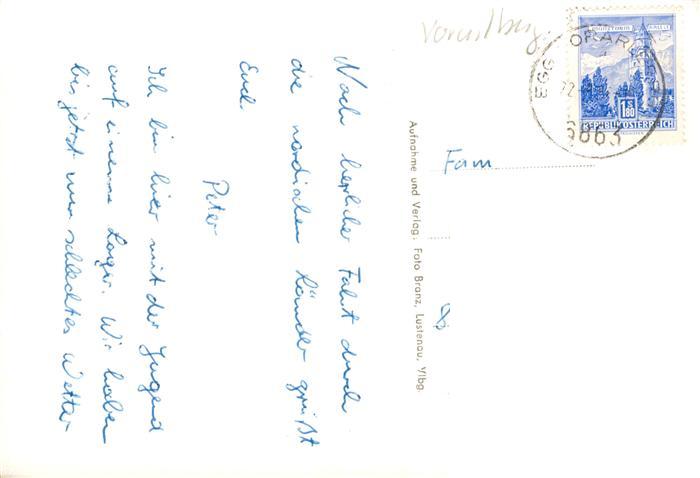 Nach herrlicher Fahrt durch
die nordischen Länder grüßt
Euch
Peter
Ich bin hier mit der Jugend
auf einem Lager. Wir haben
bis jetzt nur schlechtes Wetter
Aufnahme und Verlag: Foto Branz, Lustenau, Vlbg.
Vorarlberg.
Fam
EGG
6863
1.80
S
REPUBLIK ÖSTERREICH